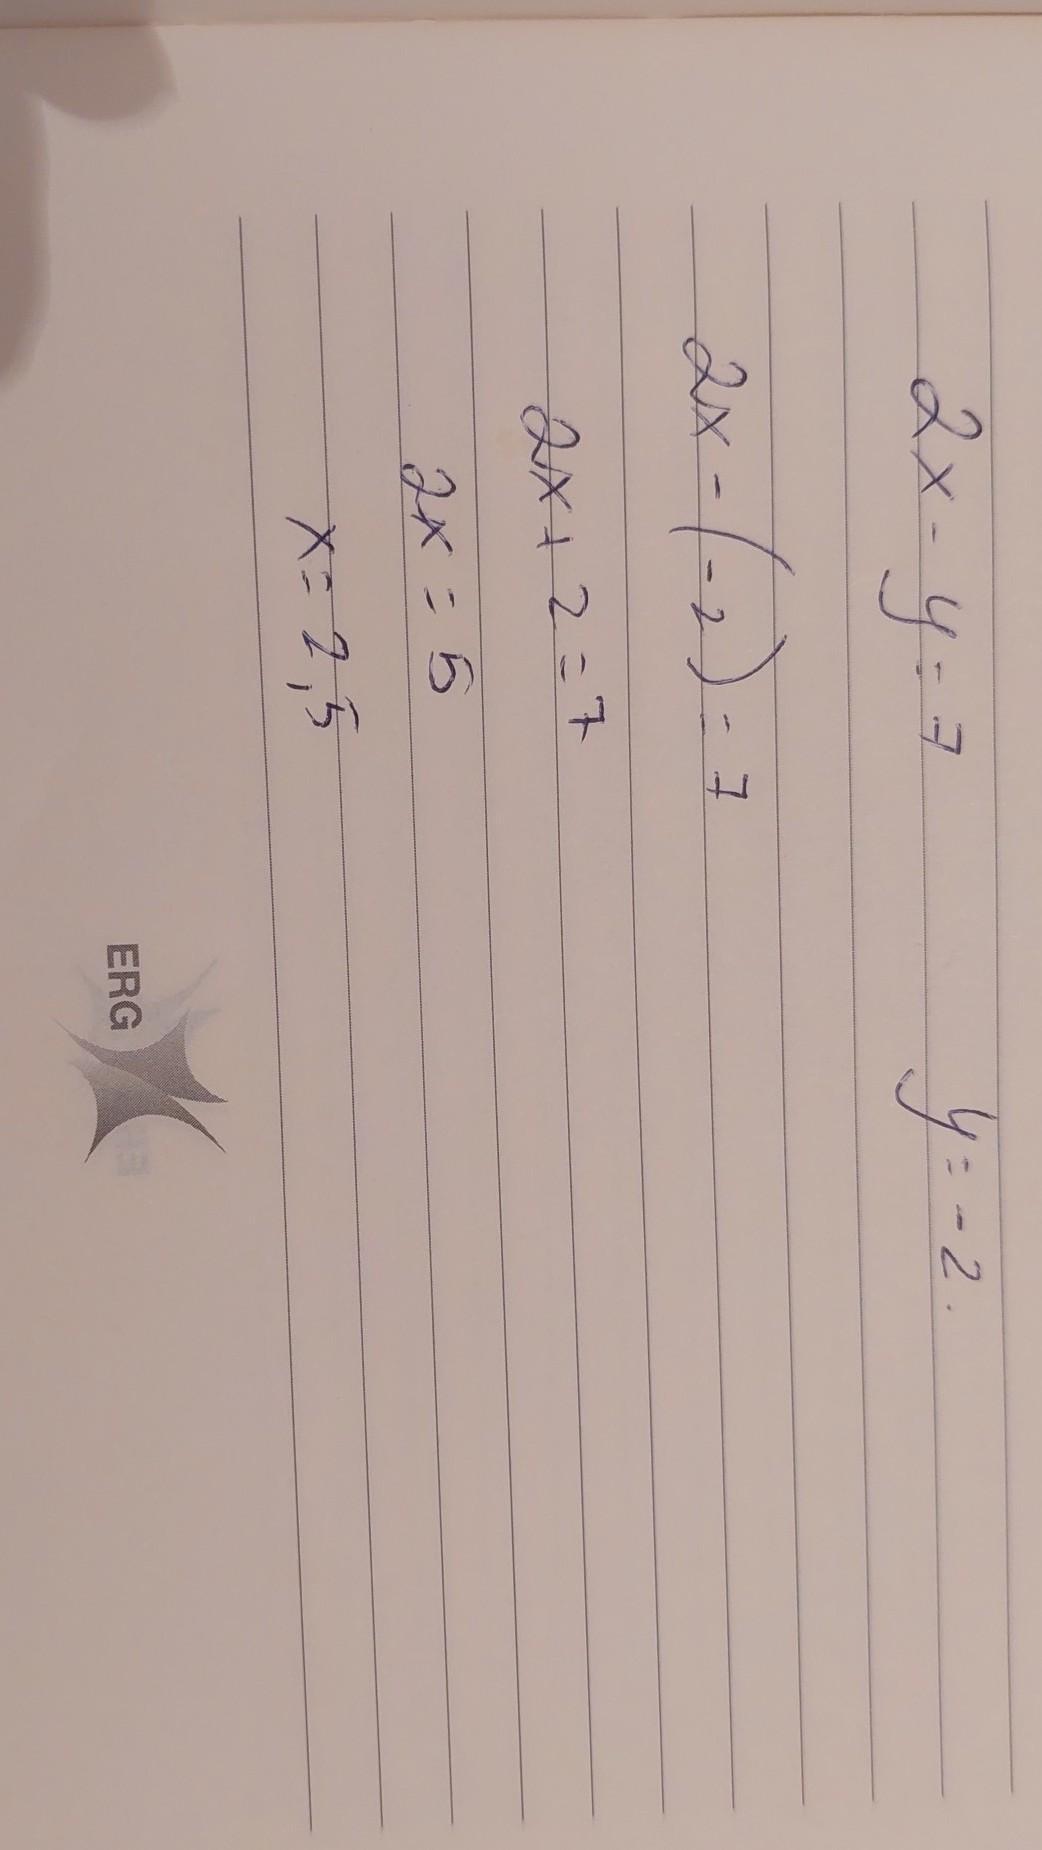 2x - y = 7 y = -2.
2x - (-2) = 7
2x + 2 = 7
2x = 5
x = 2,5
ERG